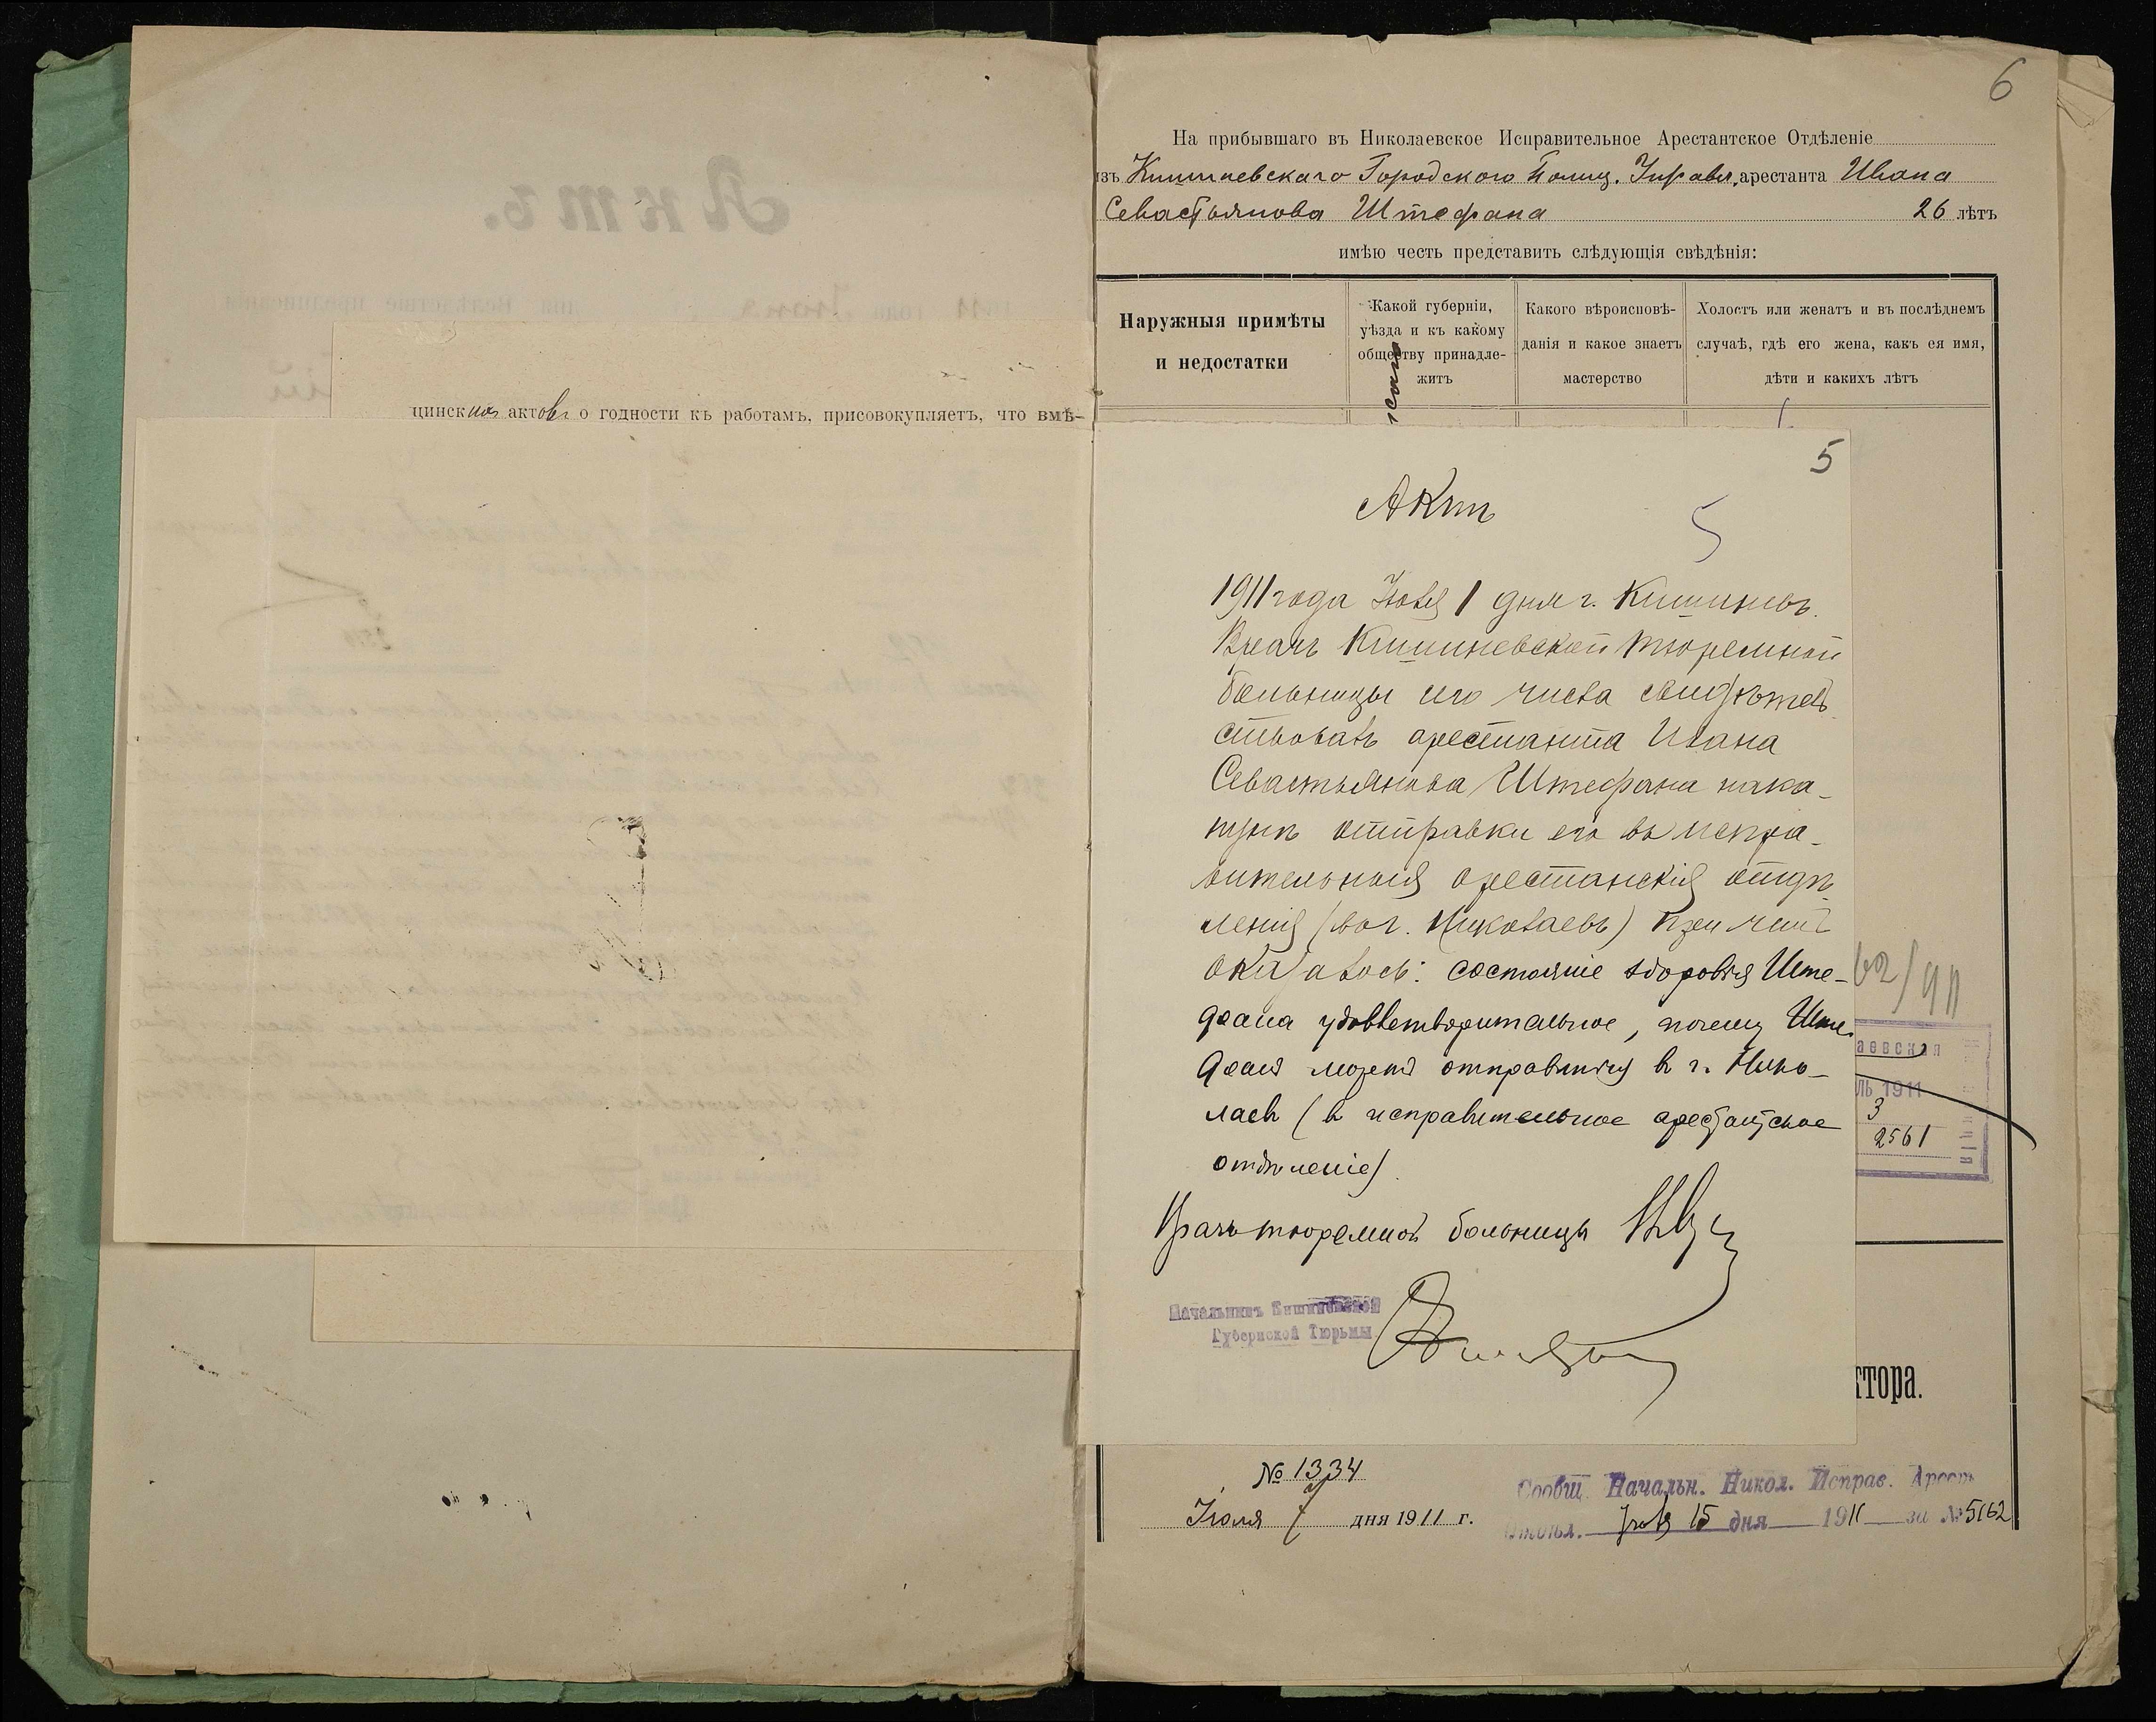 цинскихъ актовъ о годности къ работамъ, присовокупляетъ, что вмѣ-
6
На прибывшаго въ Николаевское Исправительное Арестантское Отдѣленіе
изъ Кишиневскаго Городского Полиц. Управл. арестанта Ивана
Севастьянова Штефана 26 лѣтъ
имѣю честь представить слѣдующія свѣдѣнія:
Наружныя примѣты
и недостатки
Какой губерніи,
уѣзда и къ какому
обществу принадле-
житъ
Какого вѣроисповѣ-
данія и какое знаетъ
мастерство
Холостъ или женатъ и въ послѣднемъ
случаѣ, гдѣ его жена, какъ ея имя,
дѣти и какихъ лѣтъ
5
Актъ
5
1911 года Іюля 1 дня г. Кишиневъ.
Врачъ Кишиневской тюремной
больницы сего числа свидѣтель
ствовалъ арестанта Ивана
Севастьянова Штефана нака-
нунѣ отправки его въ испра-
вительныя арестанскія отдѣ
ленія (въ г. Николаевъ) при чемъ
оказалось: состояніе здоровья Ште-
фана удовлетворительное, почему Ште-
фанъ можетъ отправиться въ г. Нико-
лаевъ (въ исправительное арестантское
отдѣленіе).
Врачъ тюремной больницы
Начальникъ Кишиневской
Губернской Тюрьмы
аевская
ЛЬ 1911
3
2561
ктора.
№ 1334
Іюля 7 дня 1911 г.
Сообщ. Начальн. Никол. Исправ. Арест.
Отдѣл. Іюля 15 дня 1911 за № 5162